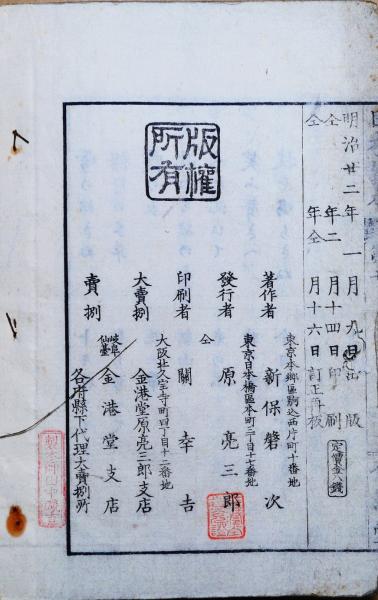 明治廿二年一月九日出版
仝年二月十四日印刷
仝年仝月十六日訂正再板
定價金八錢
版權所有
東京本郷區駒込西片町十番地
著作者 新保磐次
東京日本橋區本町三丁目十七番地
發行者 原亮三郎
仝
大阪北久寶寺町四丁目十二番地
印刷者 關幸吉
大賣捌 金港堂原亮三郎支店
岐阜
仙臺
賣捌 金港堂支店
各府縣下代理大賣捌所